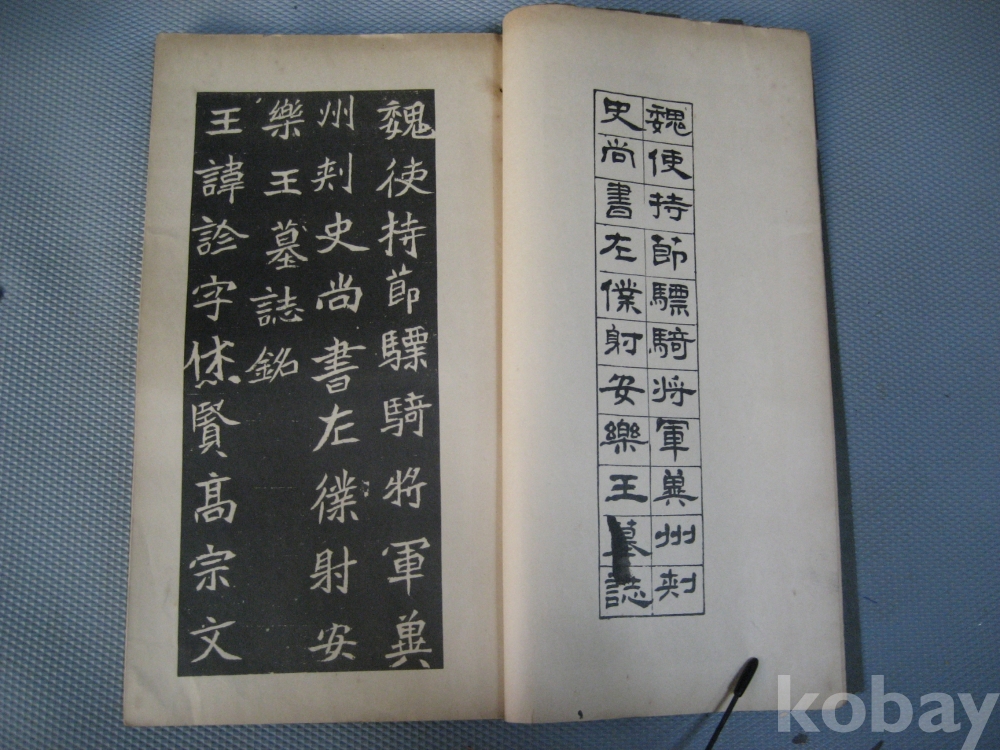 魏使持節驃騎將軍兾州刾
史尚書左僕射安樂王墓誌
魏使持節驃騎將軍兾
州刾史尚書左僕射安
樂王墓誌銘
王諱診字休賢高宗文
kobay